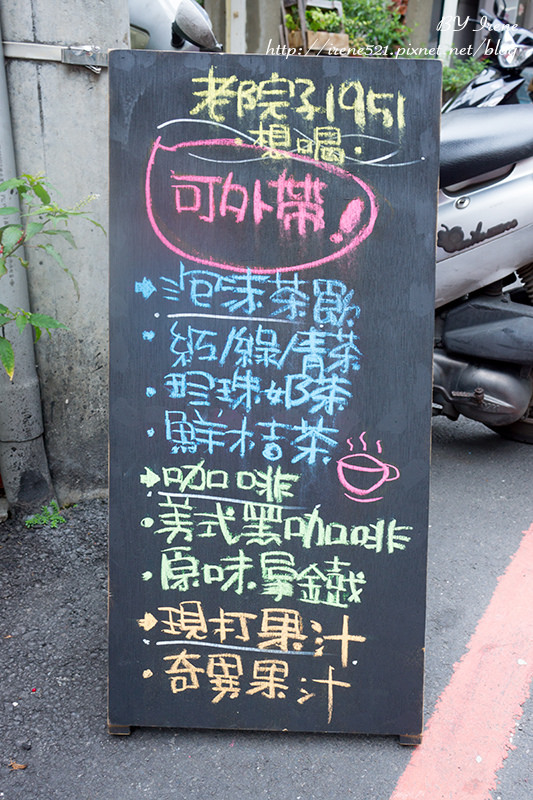 BY Irene
http://irene521.pixnet.net/blog
老院子1951
·想喝·
可外帶!
泡沫茶飲
·紅/綠/青茶
·珍珠奶茶
·鮮桔茶
咖啡
·美式黑咖啡
·原味拿鐵
現打果汁
·奇異果汁